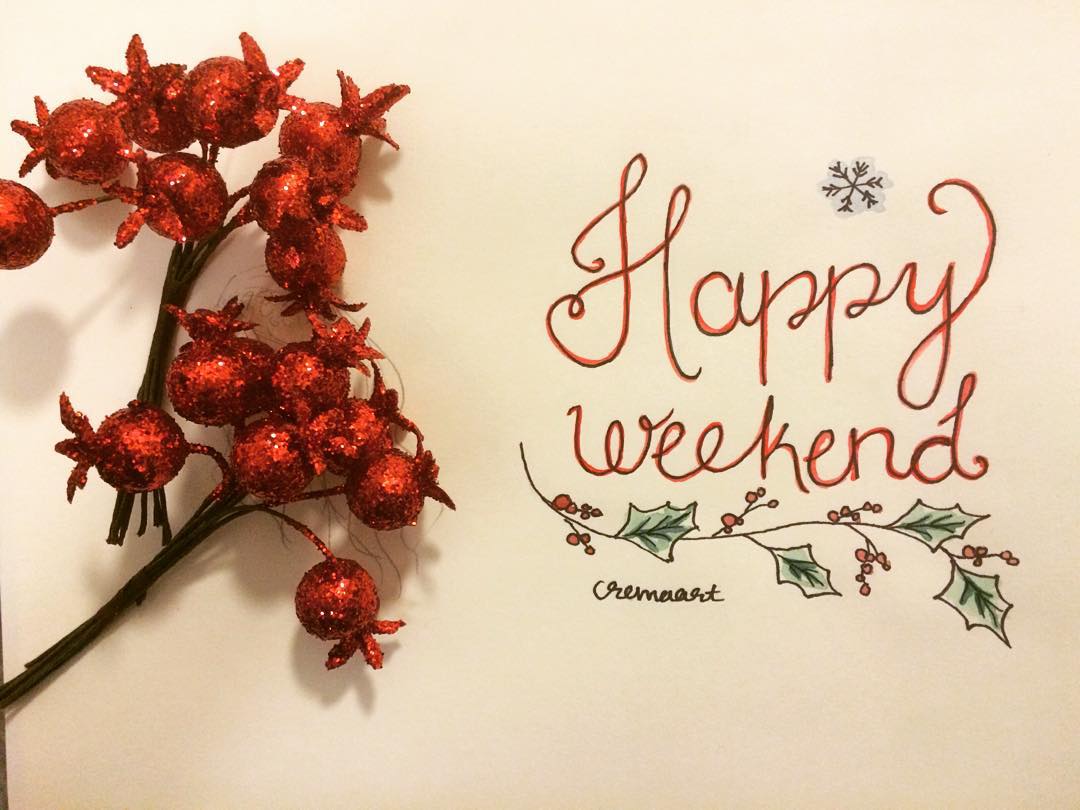 Happy
weekend
cremaart